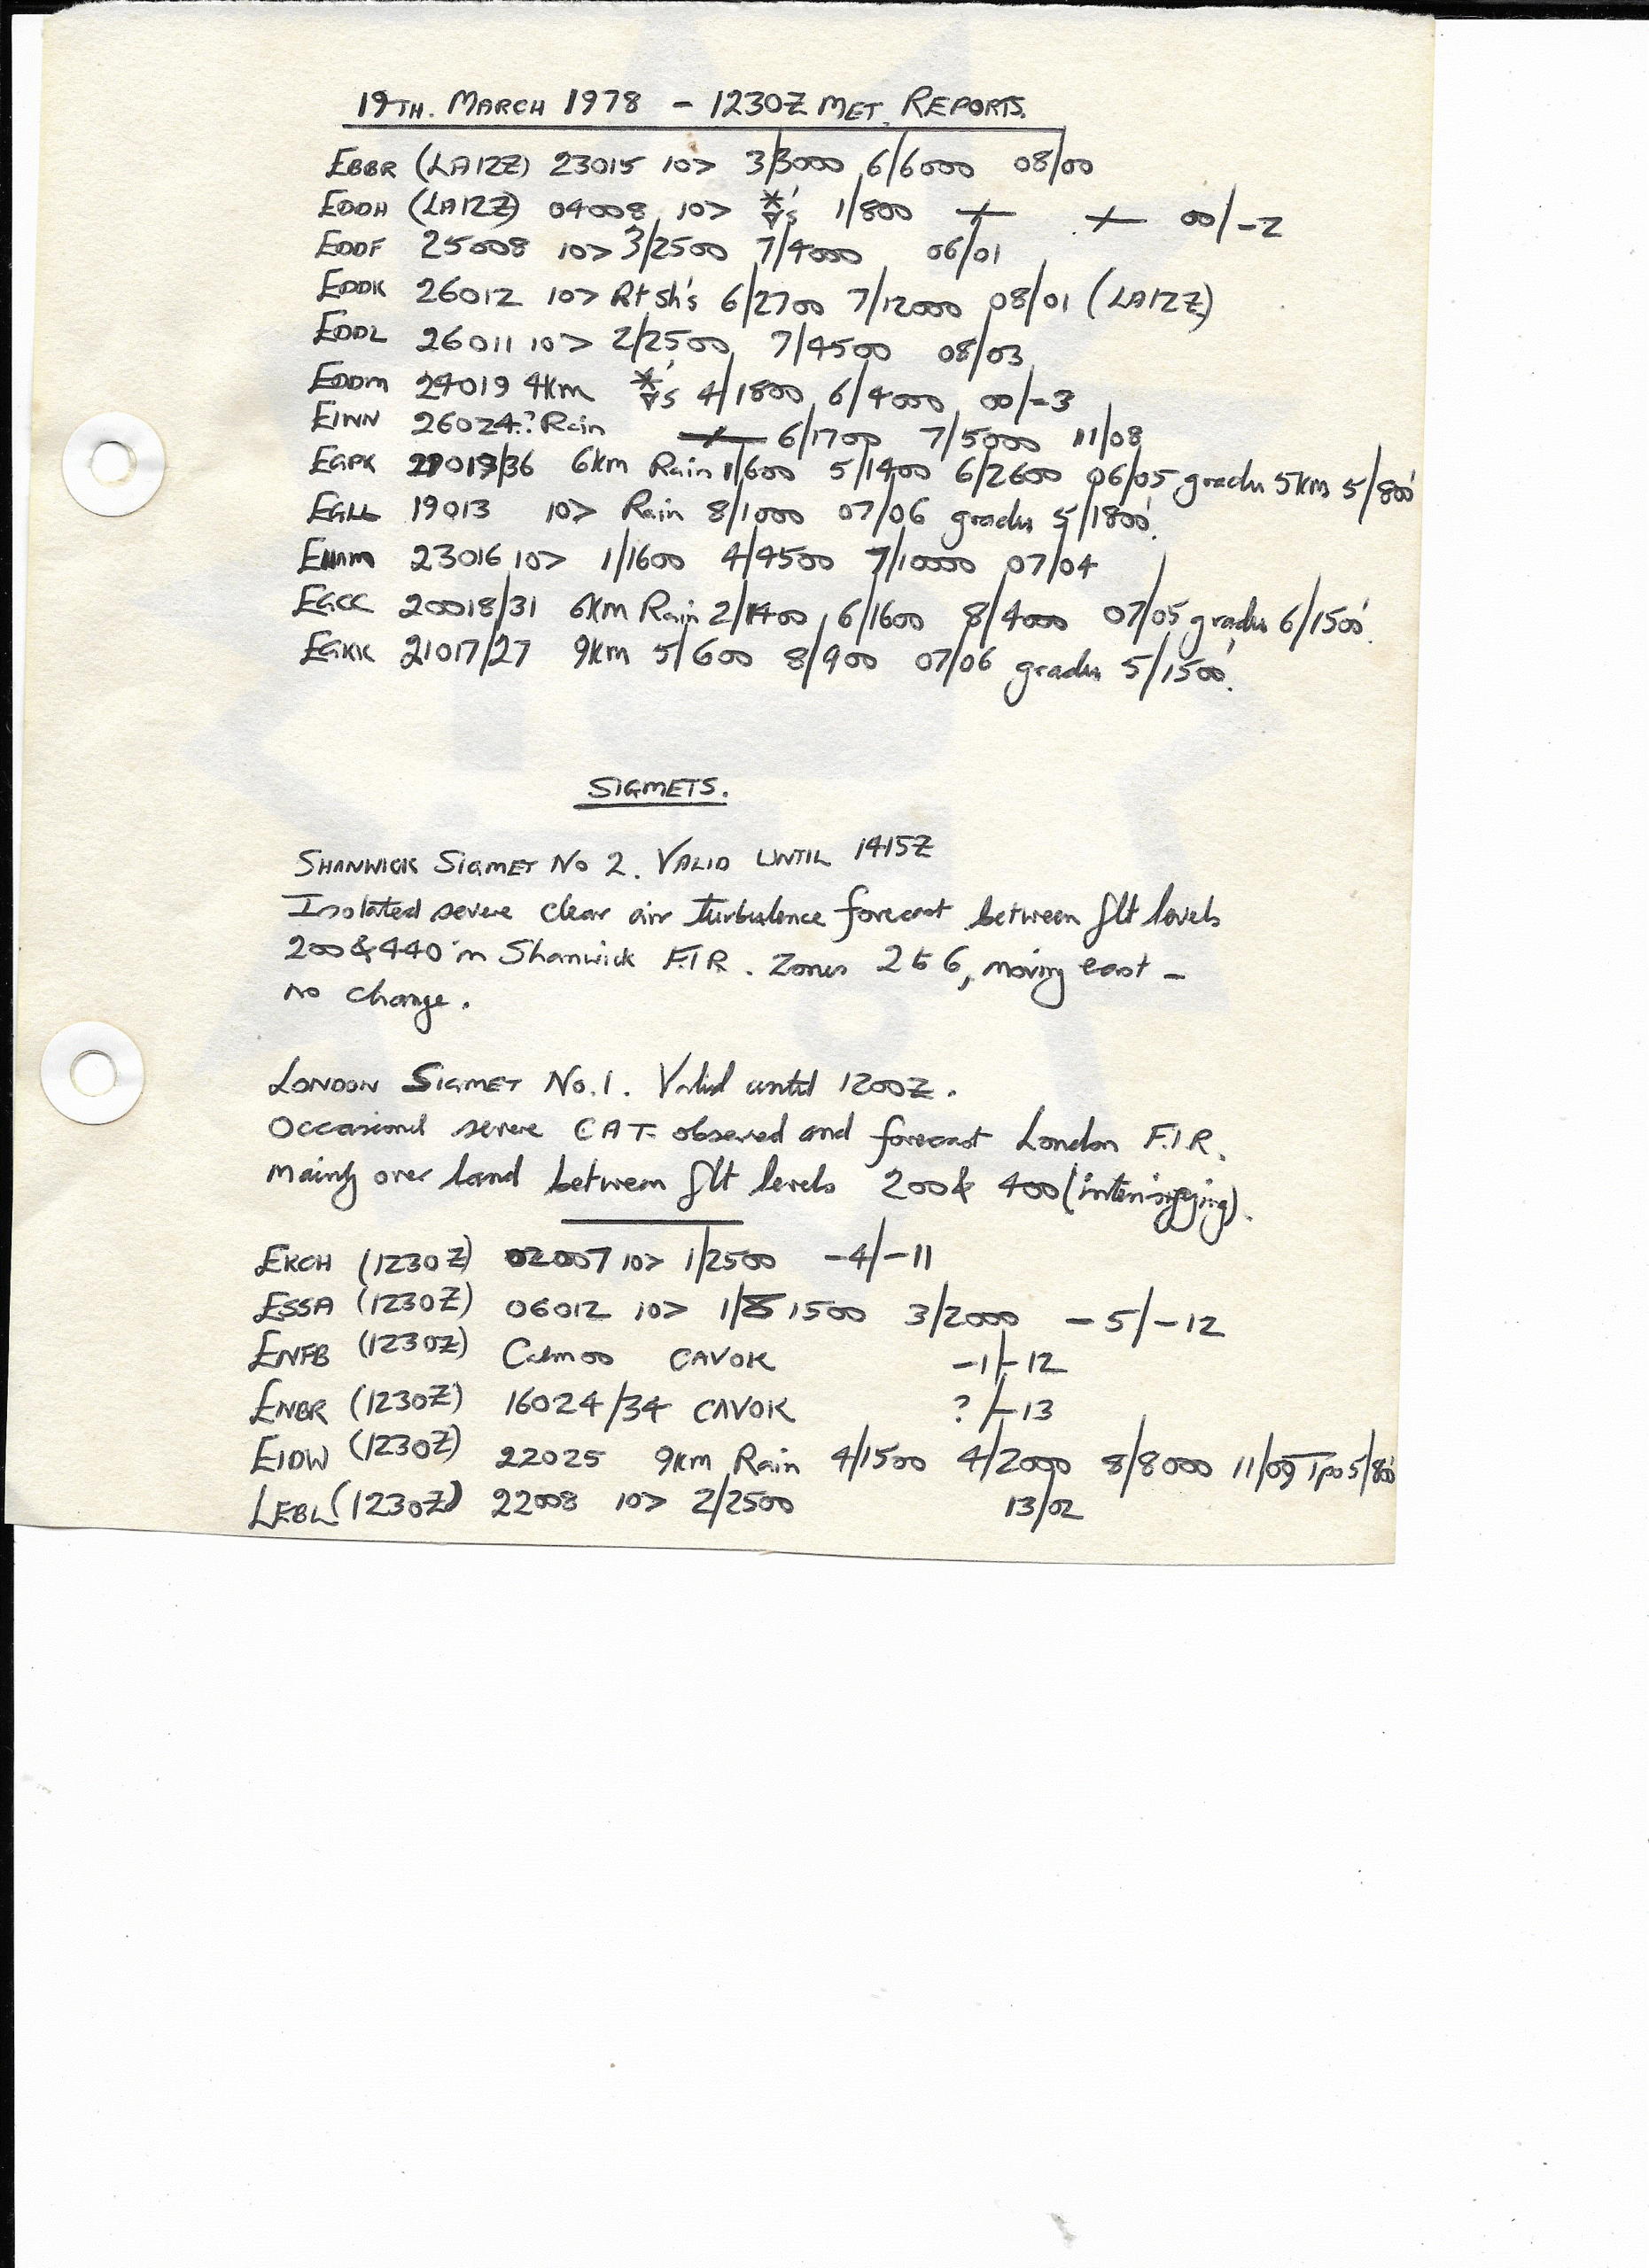 19TH. MARCH 1978 - 1230Z MET. REPORTS.
EBBR (LA12Z) 23015 10> 3/3000 6/6000 08/00
EDDH (LA12Z) 04008 10> 1/800 00/-2
EDDF 25008 10> 3/2500 7/4000 06/01
EDDK 26012 10> R+ Sh's 6/2700 7/12000 08/01 (LA12Z)
EDDL 26011 10> 2/2500 7/4500 08/03
EDDM 24019 4km 4/1800 6/4000 00/-3
EINN 26024 ? Rain 6/1700 7/5000 11/08
EGPK 6km Rain 1/600 5/1400 6/2600 06/05 gradu 5km 5/800'
EGLL 19013 10> Rain 8/1000 07/06 gradu 5/1800'.
23016 10> 1/1600 4/4500 7/10000 07/04
EGCC 20018/31 6km Rain 2/1400 6/1600 8/4000 07/05 gradu 6/1500'.
EGKK 21017/27 9km 5/600 8/900 07/06 gradu 5/1500'.
SIGMETS.
SHANWICK SIGMET No 2. VALID UNTIL 1415Z
Isolated severe clear air turbulence forecast between flt levels
200 & 440 in Shanwick F.I.R. Zones 2 to 6, moving east -
no change.
LONDON SIGMET No. 1. Valid until 1200Z.
Occasional severe C A T. observed and forecast London F.I.R.
mainly over land between flt levels 200 & 400 (intensifying).
EKCH (1230Z) 02007 10> 1/2500 -4/-11
ESSA (1230Z) 06012 10> 1/1500 3/2000 -5/-12
ENFB (1230Z) Calm 00 CAVOK -1/-12
ENBR (1230Z) 16024/34 CAVOK ?/-13
EIDW (1230Z) 22025 9km Rain 4/1500 4/2000 8/8000 11/09 Tpo 5/800'
LEBL (1230Z) 22008 10> 2/2500 13/02